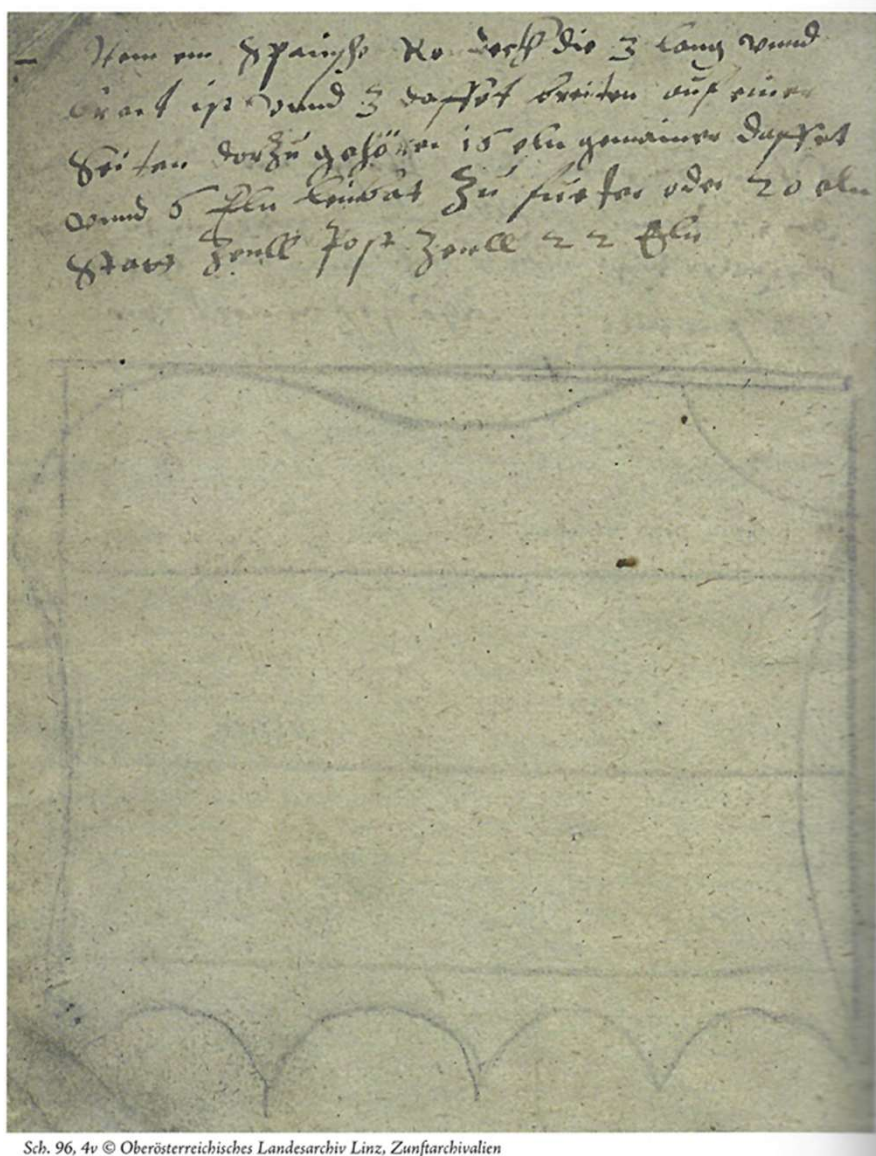 Item ein Spanische Ro deckh die 3 lang vnnd
brait ist vnnd 3 daffet breiten auf einer
Seiten dorzu gehören 15 eln gemainer daffet
vnnd 5 Eln leinbat Zu fueter oder 20 eln
Zenll Post Zenll 22 Eln
Sch. 96, 4v © Oberösterreichisches Landesarchiv Linz, Zunftarchivalien